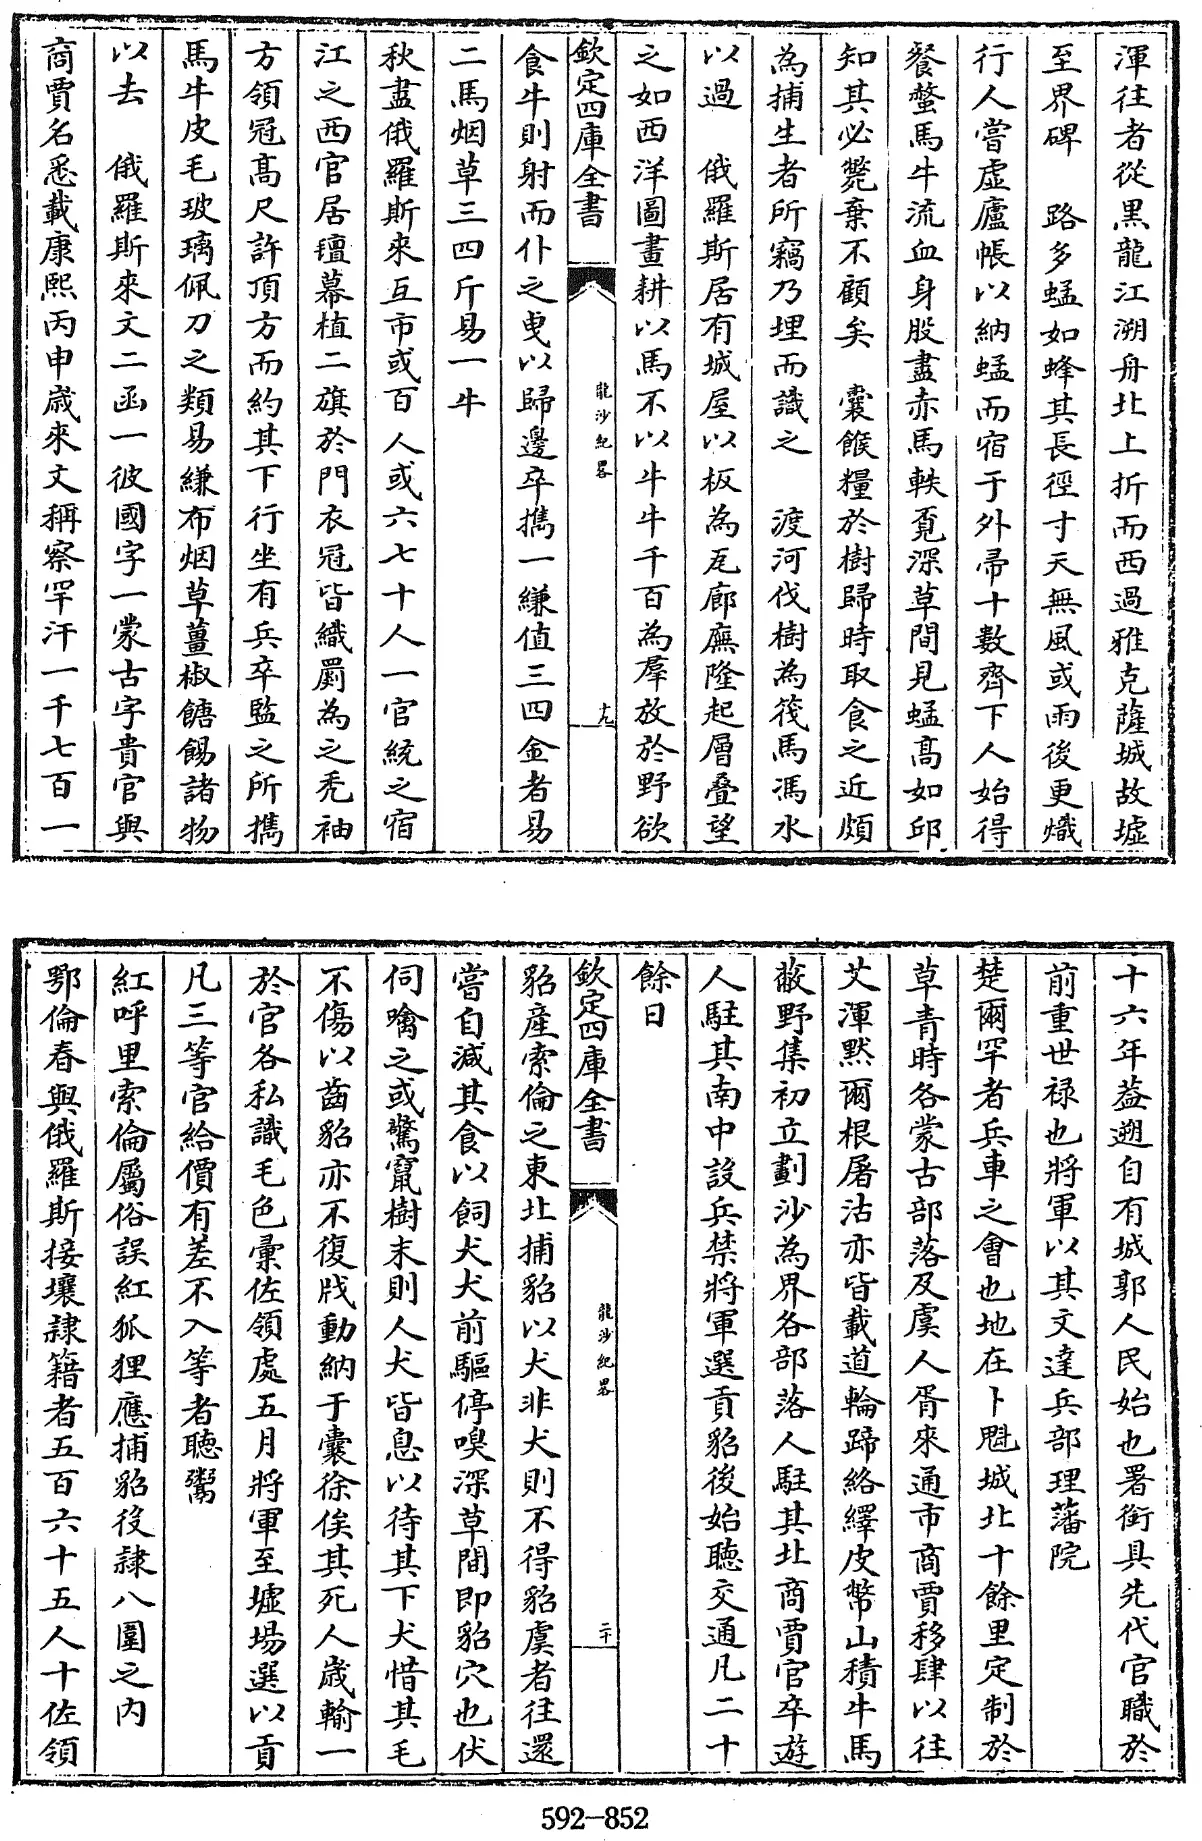 渾往者從黑龍江溯舟北上折而西過雅克薩城故墟
至界碑　路多蜢如蜂其長徑寸天無風或雨後更熾
行人嘗虛廬帳以納蜢而宿于外帚十數齊下人始得
餐螫馬牛流血身股盡赤馬軼覔深草間見蜢高如邱
知其必斃棄不顧矣　囊餱糧於樹歸時取食之近頗
為捕生者所竊乃埋而識之　渡河伐樹為筏馬馮水
以過　俄羅斯居有城屋以板為瓦廊廡隆起層疊望
之如西洋圖畫耕以馬不以牛牛千百為羣放於野欲
欽定四庫全書
龍沙紀畧
十九
食牛則射而仆之曵以歸邊卒攜一縑值三四金者易
二馬烟草三四斤易一牛
秋盡俄羅斯來互市或百人或六七十人一官統之宿
江之西官居氊幕植二旗於門衣冠皆織罽為之禿袖
方領冠高尺許頂方而約其下行坐有兵卒監之所攜
馬牛皮毛玻璃佩刀之類易縑布烟草薑椒餹餳諸物
以去　俄羅斯來文二函一彼國字一蒙古字貴官與
商賈名悉載康熙丙申歲來文稱察罕汗一千七百一
十六年葢遡自有城郭人民始也署銜具先代官職於
前重世祿也將軍以其文達兵部理藩院
楚爾罕者兵車之會也地在卜魁城北十餘里定制於
草青時各蒙古部落及虞人胥來通市商賈移肆以往
艾渾黙爾根屠沽亦皆載道輪蹄絡繹皮幣山積牛馬
蔽野集初立劃沙為界各部落人駐其北商賈官卒遊
人駐其南中設兵禁將軍選貢貂後始聽交通凡二十
餘日
欽定四庫全書
龍沙紀畧
二十
貂產索倫之東北捕貂以犬非犬則不得貂虞者往還
嘗自減其食以飼犬犬前驅停嗅深草間即貂穴也伏
伺噙之或驚竄樹末則人犬皆息以待其下犬惜其毛
不傷以齒貂亦不復戕動納于囊徐俟其死人歲輸一
於官各私識毛色彙佐領處五月將軍至墟場選以貢
凡三等官給價有差不入等者聽鬻
紅呼里索倫屬俗誤紅狐狸應捕貂役隷八圍之内
鄂倫春與俄羅斯接壤隷籍者五百六十五人十佐領
592-852